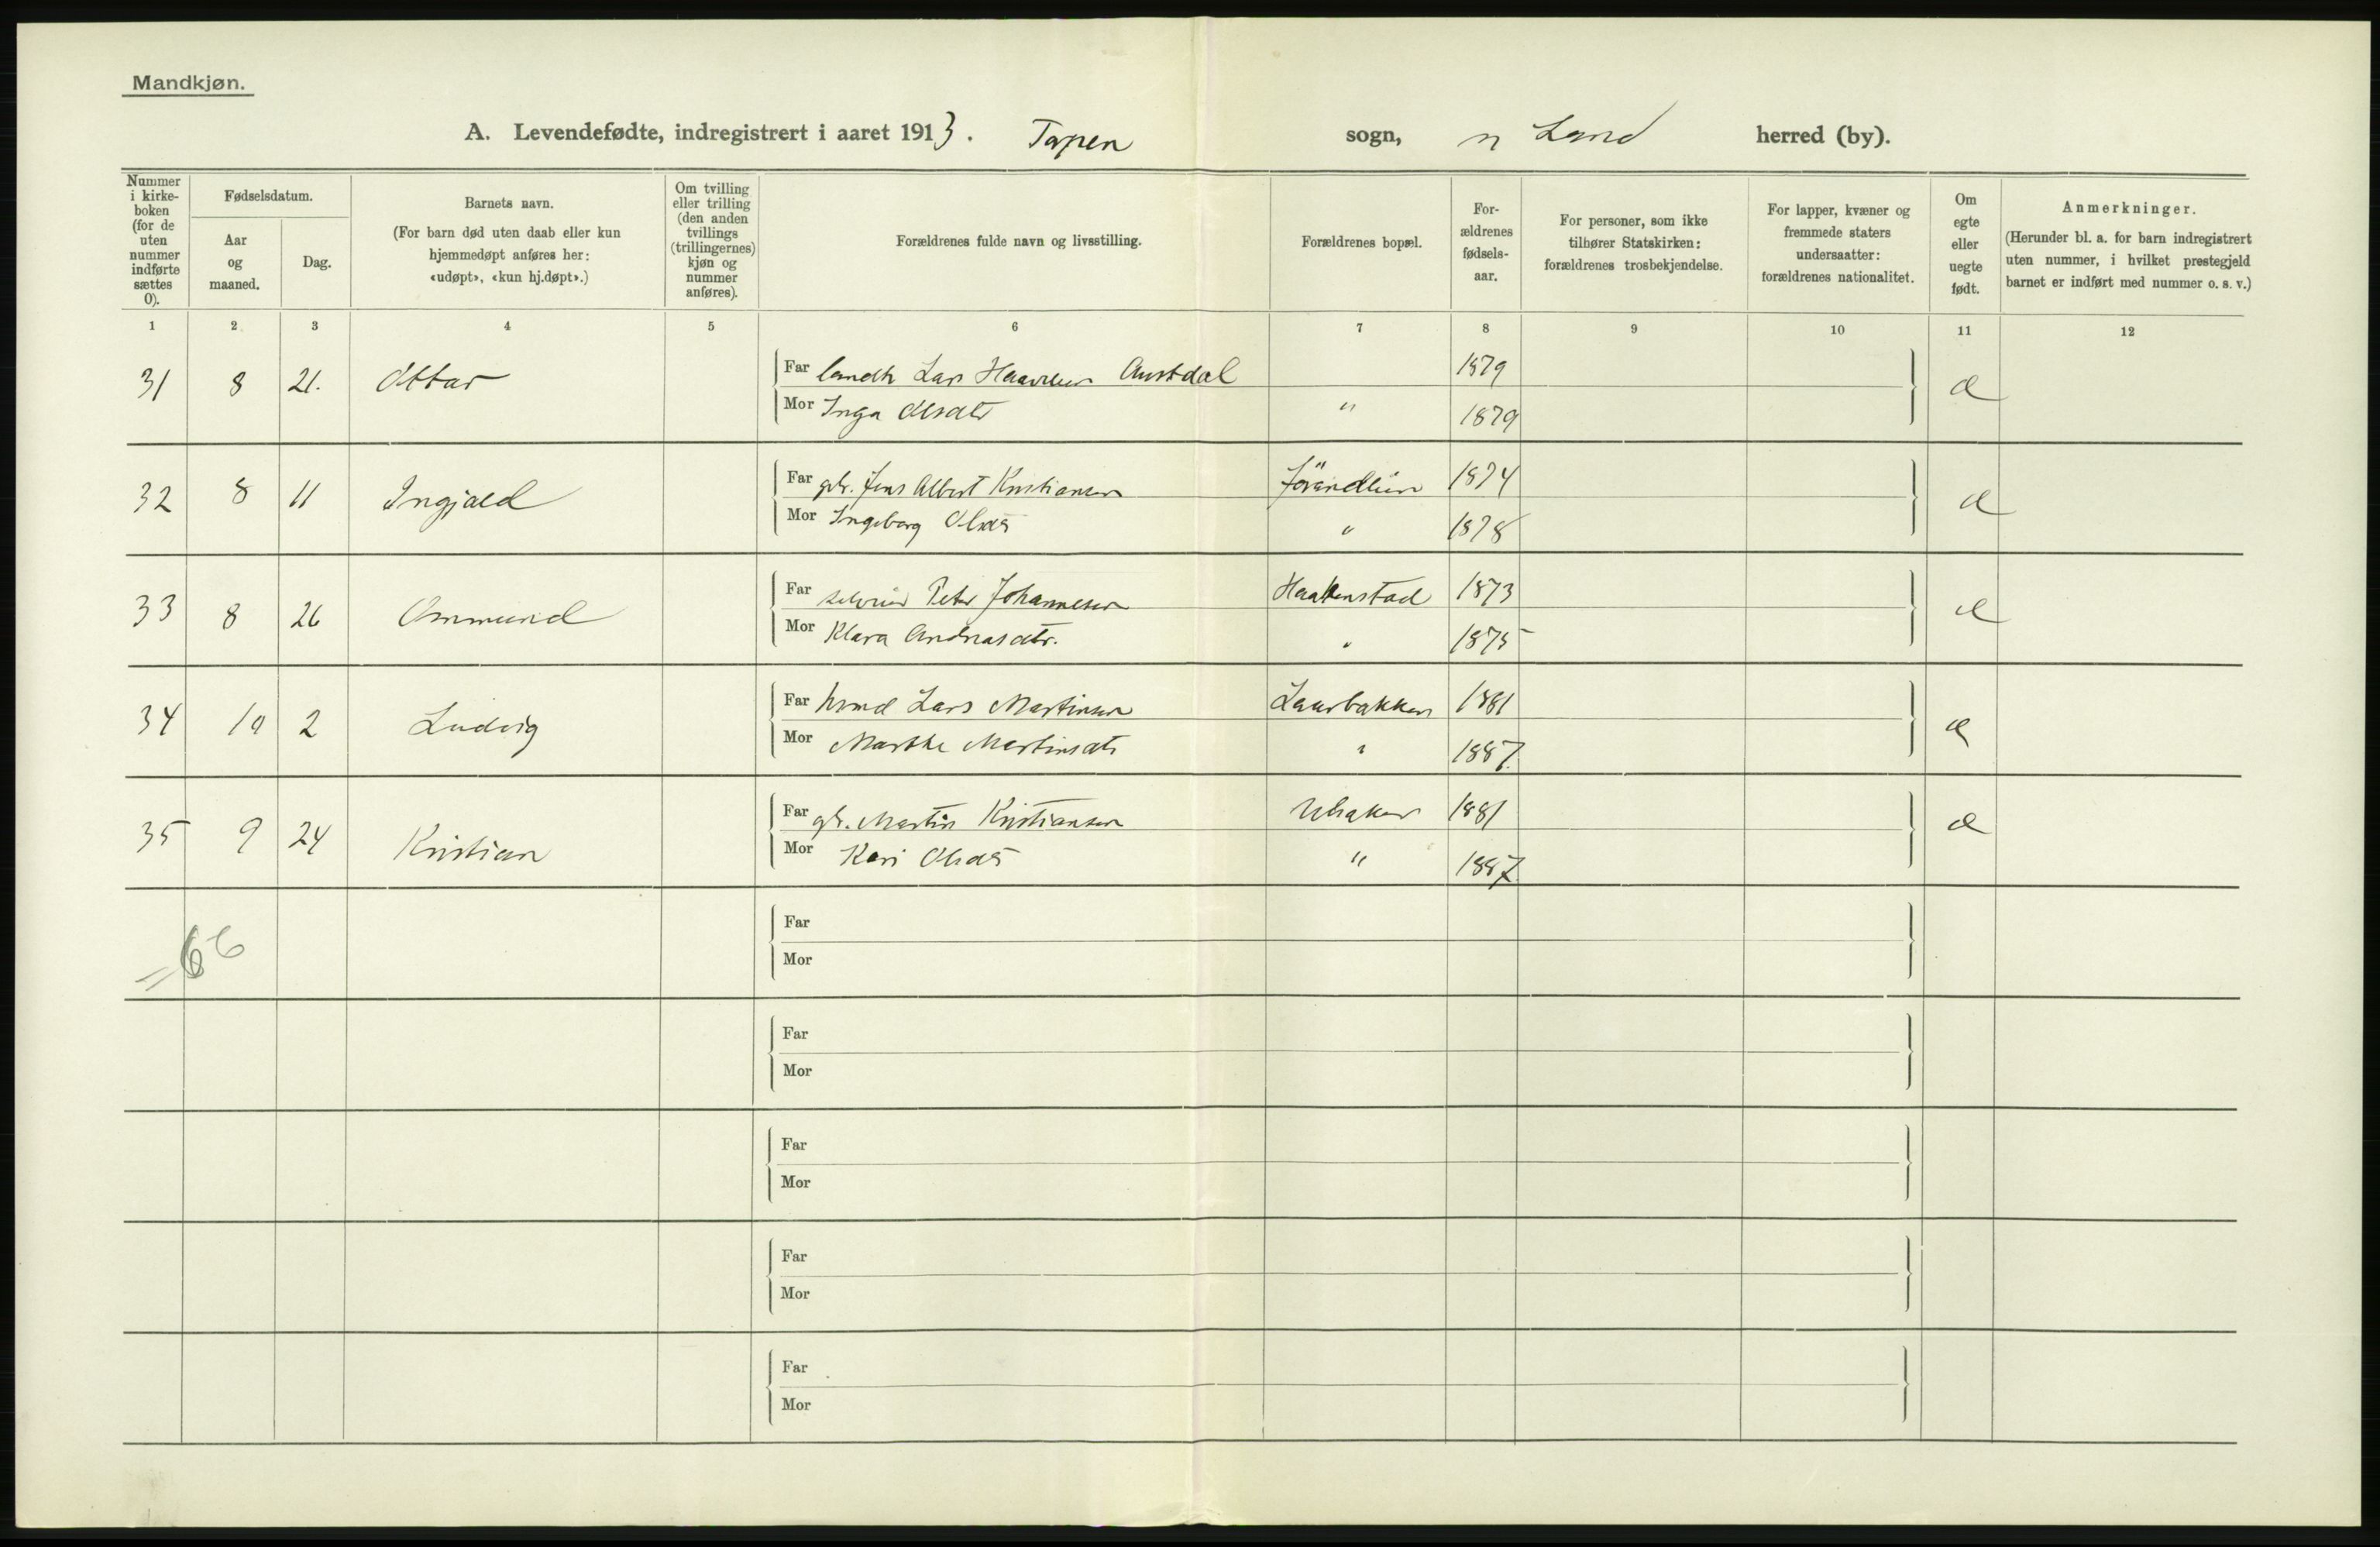 Mandkjøn.
A. Levendefødte, indregistrert i aaret 1913. Torpen sogn, n Land herred (by).
Nummer i kirke- boken (for de uten nummer indførte sættes 0).
Fødselsdatum.
Aar og maaned.
Dag.
Barnets navn.
(For barn død uten daab eller kun hjemmedøpt anføres her: «udøpt», «kun hj.døpt».)
Om tvilling eller trilling (den anden tvillings (trillingernes) kjøn og nummer anføres).
Forældrenes fulde navn og livsstilling.
Forældrenes bopæl.
For- ældrenes fødsels- aar.
For personer, som ikke tilhører Statskirken: forældrenes trosbekjendelse.
For lapper, kvæner og fremmede staters undersaatter: forældrenes nationalitet.
Om egte eller uegte født.
Anmerkninger.
(Herunder bl. a. for barn indregistrert uten nummer, i hvilket prestegjeld barnet er indført med nummer o. s. v.)
1 2 3 4 5 6 7 8 9 10 11 12
31 8 21. Ottar Far Lars Austdal 1879
Mor Inga Olsdtr " 1879
32 8 11 Ingjald Far gbr. Jens Albert Kristiansen 1874
Mor Ingeborg Olsdtr " 1878
33 8 26 Ommund Far Peter Johannesen Haakenstad 1873
Mor Klara Andreasdtr. " 1875
34 10 2 Ludvig Far Lars Martinsen 1881
Mor Marthe Martinsdtr " 1887.
35 9 24 Kristian Far gbr. Martin Kristiansen Ulsaker 1881
Mor Kari Olsdtr " 1887
= 66
Far
Mor
Far
Mor
Far
Mor
Far
Mor
Far
Mor